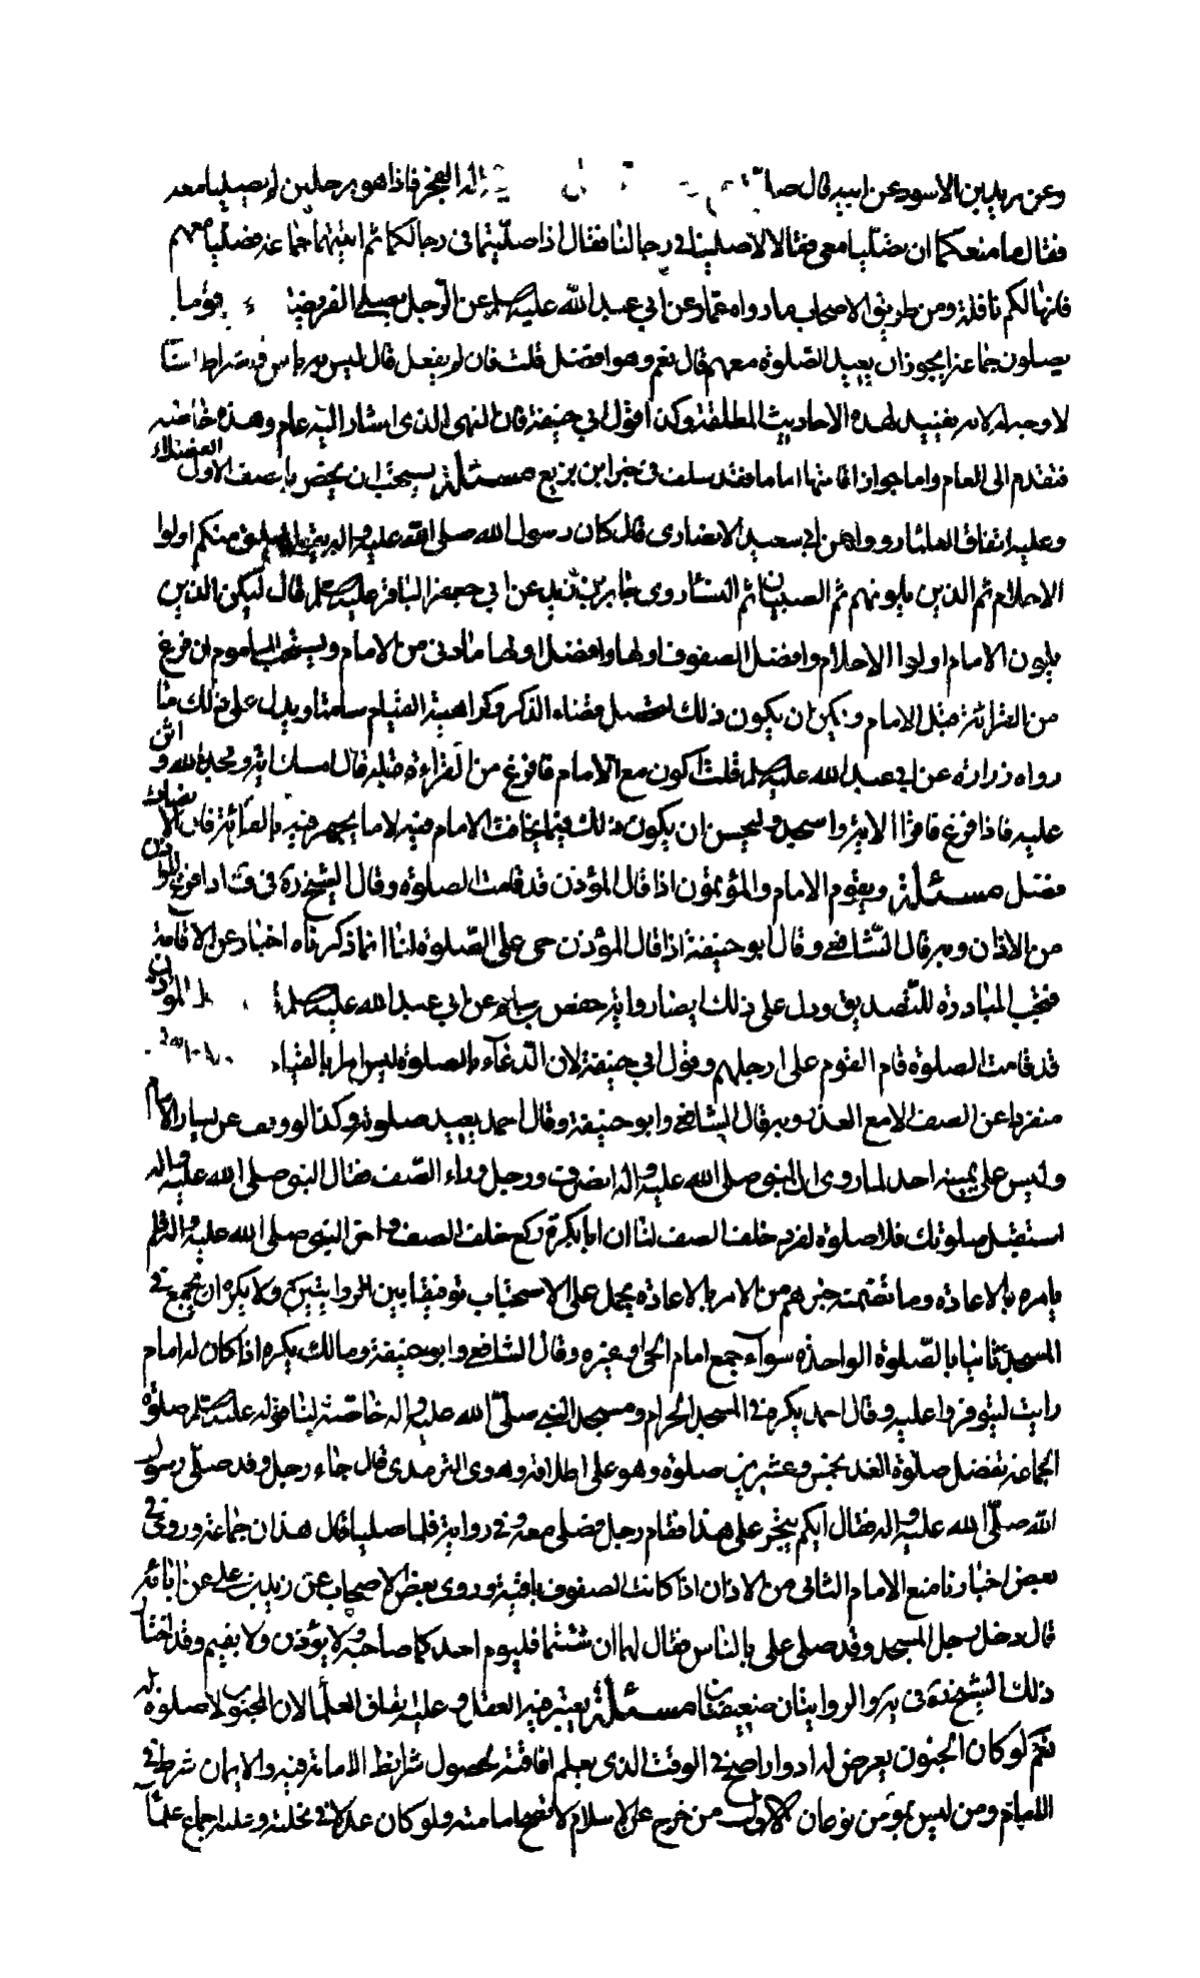 وعن يزيد بن الاسود عن ابيه قال صلى الفجر فاذا هو برجلين لم يصليا معه
فقال ما منعكما ان تصليا معي فقالا لا صلينا في رحالنا فقال اذا صليتما في رحالكما ثم اتيتما جماعة فصليا معهم
فانها لكم نافلة ومن طريق الاصحاب ما رواه عمار عن ابي عبد الله عليه السلم عن الرجل يصلي الفريضة قوما
يصلون جماعة ايجوز ان يعيد الصلوة معهم قال نعم وهو افضل قلت فان لم يفعل قال ليس به باس
لا وجه له لانه تقييد لهذه الاحاديث المطلقة وكذا قول ابي حنيفة فان النهي الذي اشار اليه عام وهذه خاصة
فتقدم الى العام واما جواز اقامتها اماما فقد سلف في خبر ابن بزيع مسئلة يستحب ان يختص بالصف الاول الفضلاء
وعليه اتفاق العلماء رووا عن ابي سعيد الانصاري قال كان رسول الله صلى الله عليه واله منكم اولوا
الاحلام ثم الذين يلونهم ثم الصبيان ثم النساء روى جابر بن يزيد عن ابي جعفر الباقر عليه السلم قال ليكن الذين
يلون الامام اولوا الاحلام وافضل الصفوف اولها وافضل اولها ما دنى من الامام ويستحب للماموم ان فرغ
من القرائة قبل الامام ويكن ان يكون ذلك لتحصل فضاء الذكر وكراهية القيام ساكتا ويدل على ذلك ما
رواه زرارة عن ابي عبد الله عليه السلم قلت اكون مع الامام فافرغ من القراءة قبله قال امسك اية ومجد الله واثن
عليه فاذا فرغ فاقرأ الاية واسجد ويحسن ان يكون ذلك فيما يخافت الامام فيه لا ما يجهر فيه بالقرائة فان الانصات
افضل مسئلة ويقوم الامام والمؤتمون اذا قال المؤذن قد قامت الصلوة وقال الشيخ ره في ف اذا فرغ المؤذن
من الاذان وبه قال الشافعي وقال ابو حنيفة اذا قال المؤذن حى على الصلوة لنا انما ذكرناه اخبار عن الاقامة
فيجب المبادرة للتصديق ودل على ذلك ايضا رواية حفص بن سالم عن ابي عبد الله عليه السلم المؤذن
قد قامت الصلوة قام القوم على ارجلهم وقول ابي حنيفة لان الدعاء بالصلوة ليس امرا بالقيام
منفردا عن الصف الا مع العذر وبه قال الشافعي وابو حنيفة وقال احمد يعيد صلوته وكذا لو وقف عن يسار الامام
وليس على يمينه احد لما روى ان النبي صلى الله عليه واله انصرف ورجل وراء الصف فقال النبي صلى الله عليه واله
استقبل صلوتك فلا صلوة لفرد خلف الصف لنا ان ابا بكرة ركع خلف الصف واخر النبي صلى الله عليه واله فلم
يامره بالاعادة وما تضمنته خبرهم من الامر بالاعادة يحمل على الاستحباب توفيقا بين الروايتين ولا يكره ان يجمع في
المسجد ثانيا بالصلوة الواحدة سواء جمع امام الحي او غيره وقال الشافعي وابو حنيفة ومالك يكره اذا كان له امام
راتب ليتوفروا عليه وقال احمد يكره في المسجد الحرام ومسجد النبي صلى الله عليه واله خاصة لنا قوله عليه السلم صلوة
الجماعة تفضل صلوة الفذ بخمس وعشرين صلوة وهو على اطلاقه وروى الترمذي قال جاء رجل وقد صلى رسول
الله صلى الله عليه واله فقال ايكم يتجر على هذا فقام رجل فصلى معه وفي رواية فلما صليا قال هذان جماعة وروى في
بعض اخبارنا منع الامام الثاني من الاذان اذا كانت الصفوف باقية وروى بعض الاصحاب عن زيد بن علي عن ابائه
قال دخل رجل المسجد وقد صلى علي بالناس فقال لهما ان شئتما فليوم احدكما صاحبه ولا يؤذن ولا يقيم وقد اختار
ذلك الشيخ ره في يه والروايتان ضعيفتان مسئلة يعتبر فيه العقل وعليه اتفاق العلماء لان المجنون لا صلوة له
نعم لو كان الجنون يعرض له ادوارا صح في الوقت الذي يعلم افاقته لحصول شرائط الامامة فيه والايمان شرط في
الامام ومن ليس بمؤمن نوعان الاول من خرج عن الاسلام لا تصح امامته ولو كان عدلا في نحلته وعليه اجماع علماء